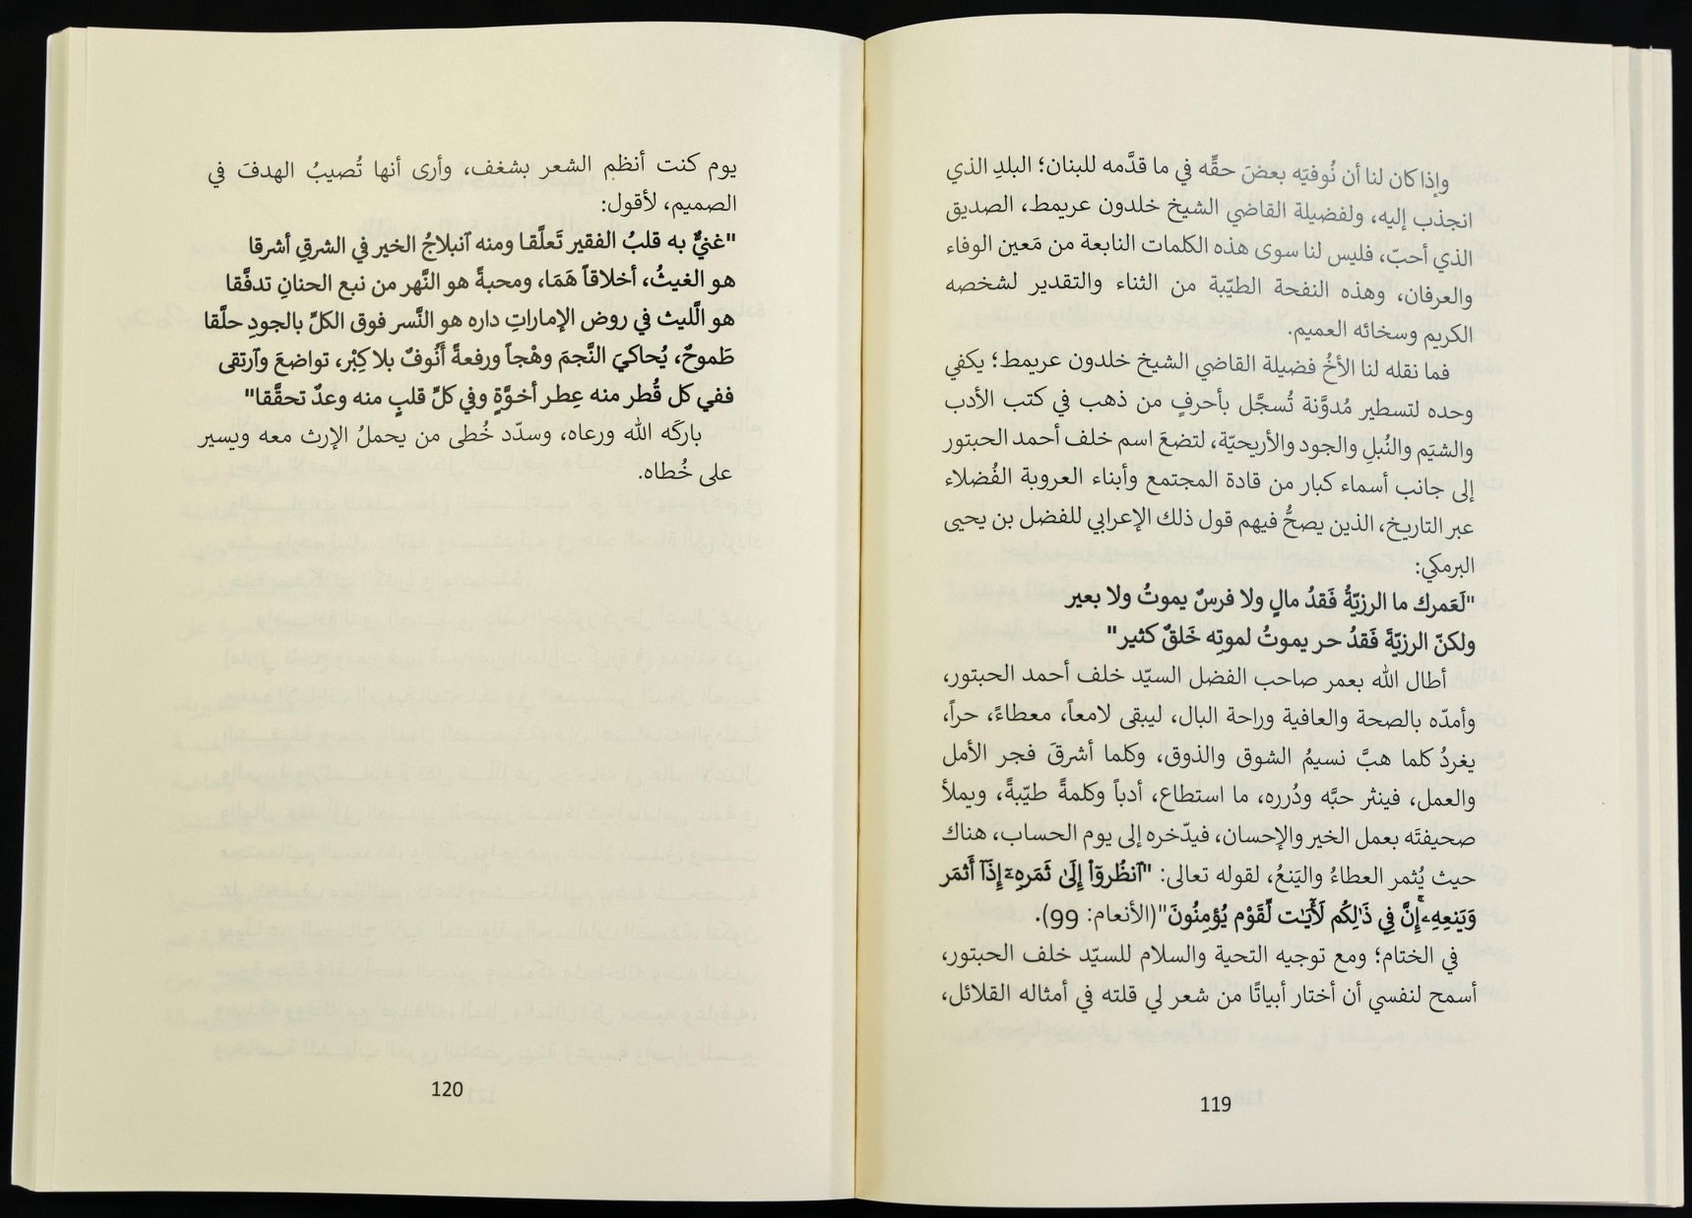 وإذا كان لنا أن نُوفيَه بعضَ حقِّه في ما قدَّمه للبنان؛ البلدِ الذي
انجذب إليه، ولفضيلة القاضي الشيخ خلدون عريمط، الصديق
الذي أحبّ، فليس لنا سوى هذه الكلمات النابعة من مَعين الوفاء
والعرفان، وهذه النفحة الطيّبة من الثناء والتقدير لشخصه
الكريم وسخائه العميم.
فما نقله لنا الأخُ فضيلة القاضي الشيخ خلدون عريمط؛ يكفي
وحده لتسطير مُدوَّنة تُسجَّل بأحرفٍ من ذهب في كتب الأدب
والشيَم والنُبلِ والجود والأريحيّة، لتضعَ اسم خلف أحمد الحبتور
إلى جانب أسماء كبار من قادة المجتمع وأبناء العروبة الفُضلاء
عبر التاريخ، الذين يصحُّ فيهم قول ذلك الإعرابي للفضل بن يحيى
البرمكي:
"لَعَمرك ما الرزيّةُ فَقدُ مالٍ ولا فرسٌ يموتُ ولا بعير
ولكنّ الرزيّةَ فَقدُ حر يموتُ لموتِه خَلقٌ كثير"
أطال الله بعمر صاحب الفضل السيّد خلف أحمد الحبتور،
وأمدّه بالصحة والعافية وراحة البال، ليبقى لامعاً، معطاءً، حراً،
يغردُ كلما هبَّ نسيمُ الشوق والذوق، وكلما أشرقَ فجر الأمل
والعمل، فينثر حبَّه ودُرره، ما استطاع، أدباً وكلمةً طيّبةً، ويملأ
صحيفتَه بعمل الخير والإحسان، فيدّخره إلى يوم الحساب، هناك
حيث يُثمر العطاءُ واليَنعُ، لقوله تعالى: "ٱنظُرُوٓاْ إِلَىٰ ثَمَرِهِۦٓ إِذَآ أَثۡمَر
وَيَنعِهِۦٓۚ إِنَّ فِي ذَٰلِكُم لَأٓيَٰت لِّقَوْم يُؤمِنُونَ"(الأنعام: 99).
في الختام؛ ومع توجيه التحية والسلام للسيّد خلف الحبتور،
أسمح لنفسي أن أختار أبياتًا من شعر لي قلته في أمثاله القلائل،
119
يوم كنت أنظم الشعر بشغف، وأرى أنها تُصيبُ الهدفَ في
الصميم، لأقول:
"غنيٌّ به قلبُ الفقير تَعلَّقا ومنه ٱنبلاجُ الخير في الشرقِ أشرقا
هو الغيثُ، أخلاقاً هَمَا، ومحبةً هو النَّهر من نبع الحنانِ تدفَّقا
هو الَّليث في روض الإماراتِ داره هو النَّسر فوق الكلِّ بالجودِ حلَّقا
طَموحٌ، يُحاكيَ النَّجمَ وهْجاً ورفعةً أَنُوفٌ بلا كِبْر، تواضعَ وٱرتقى
ففي كل قُطر منه عِطر أخوَّةٍ وفي كلِّ قلبٍ منه وعدٌ تحقَّقا"
باركَه الله ورعاه، وسدّد خُطى من يحملُ الإرث معه ويسير
على خُطاه.
120